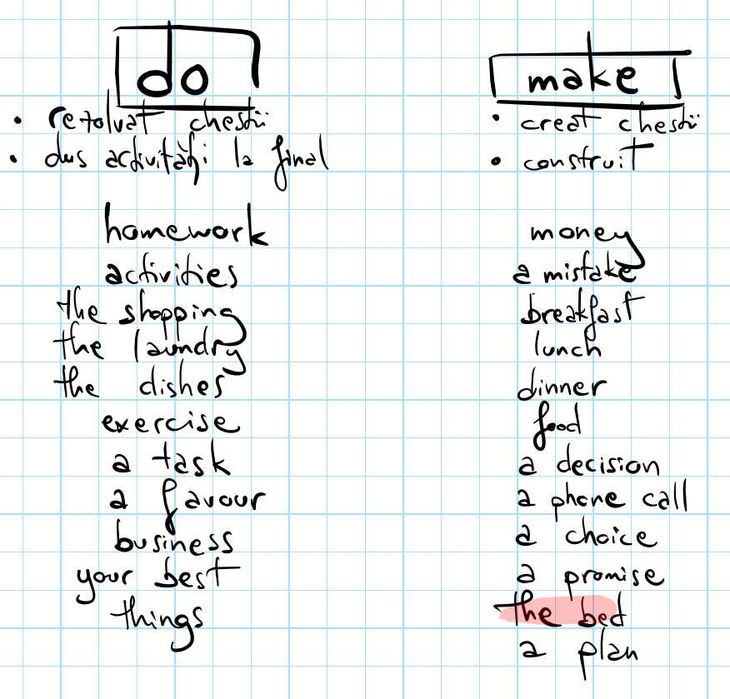 do
• rezolvat chestii
• dus activități la final
homework
activities
the shopping
the laundry
the dishes
exercise
a task
a favour
business
your best
things
make
• creat chestii
• construit
money
a mistake
breakfast
lunch
dinner
food
a decision
a phone call
a choice
a promise
the bed
a plan